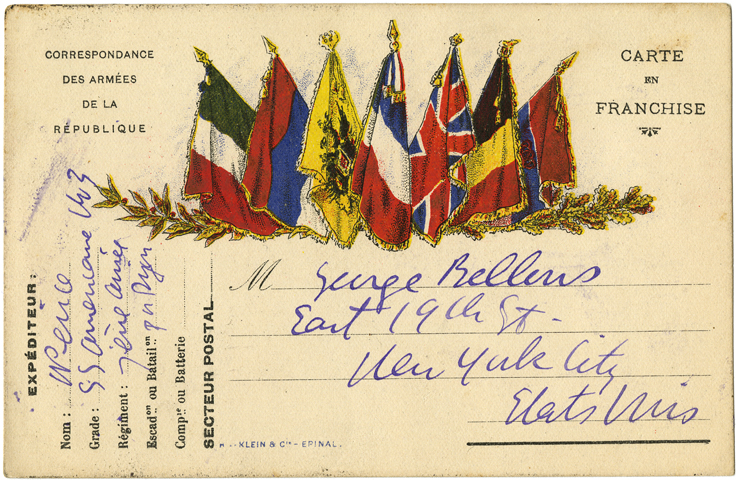 CORRESPONDANCE
DES ARMÉES
DE LA
RÉPUBLIQUE
CARTE
EN
FRANCHISE
EXPÉDITEUR:
Nom:
Grade: SS Americaine No 3
Régiment: armée
Escad.on ou Batail.on
Comp.ie ou Batterie
SECTEUR POSTAL
M George Bellows
East 19th St -
New York City
Etats Unis
KLEIN & Cie - EPINAL.